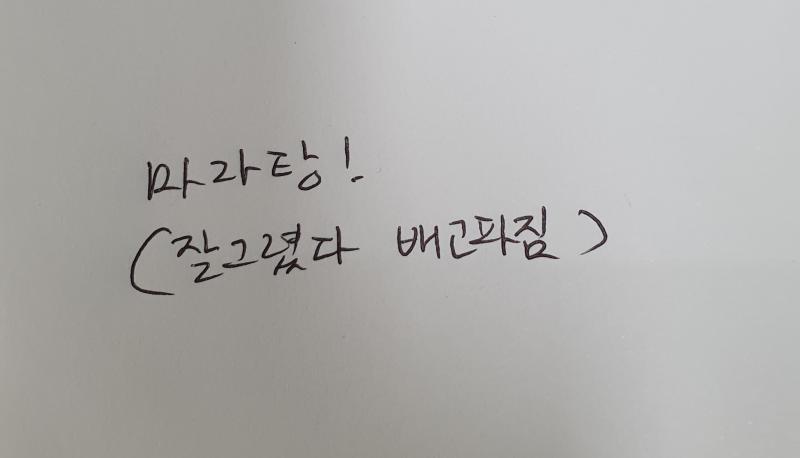 마라탕!
(잘그렸다 배고파짐)